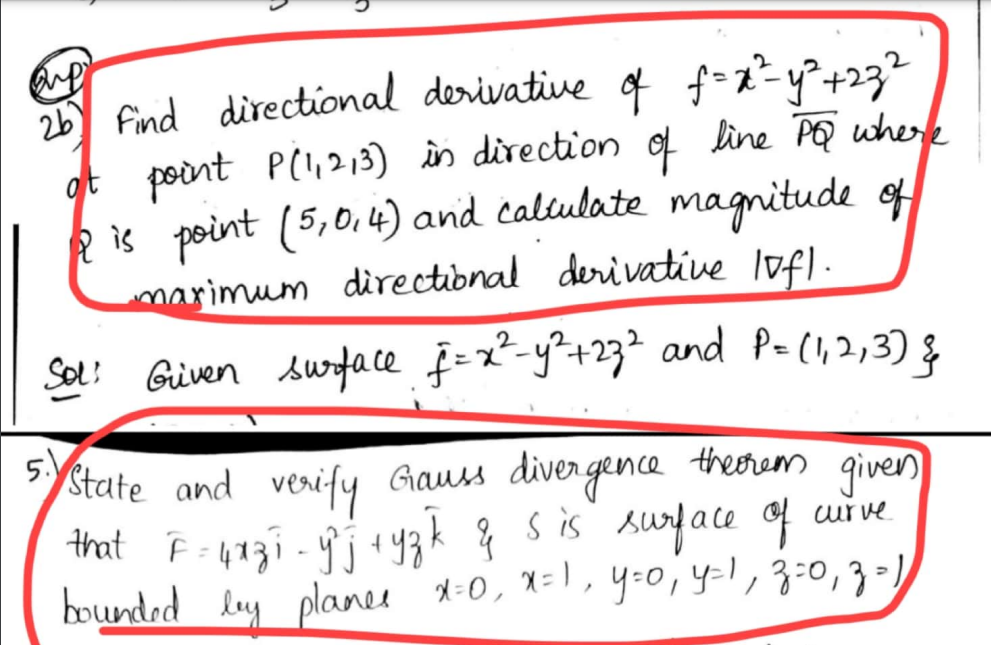 Imp
2b) Find directional derivative of f=x²-y²+2z²
at point P(1,2,3) in direction of line PQ where
Q is point (5,0,4) and calculate magnitude of
maximum directional derivative |∇f|.
Sol: Given surface f̄=x²-y²+2z² and P=(1,2,3) &
5.) State and verify Gauss divergence theorem given
that F̄=4xzī-y²j̄+yzk̄ & S is surface of curve
bounded by planes x=0, x=1, y=0, y=1, z=0, z=1